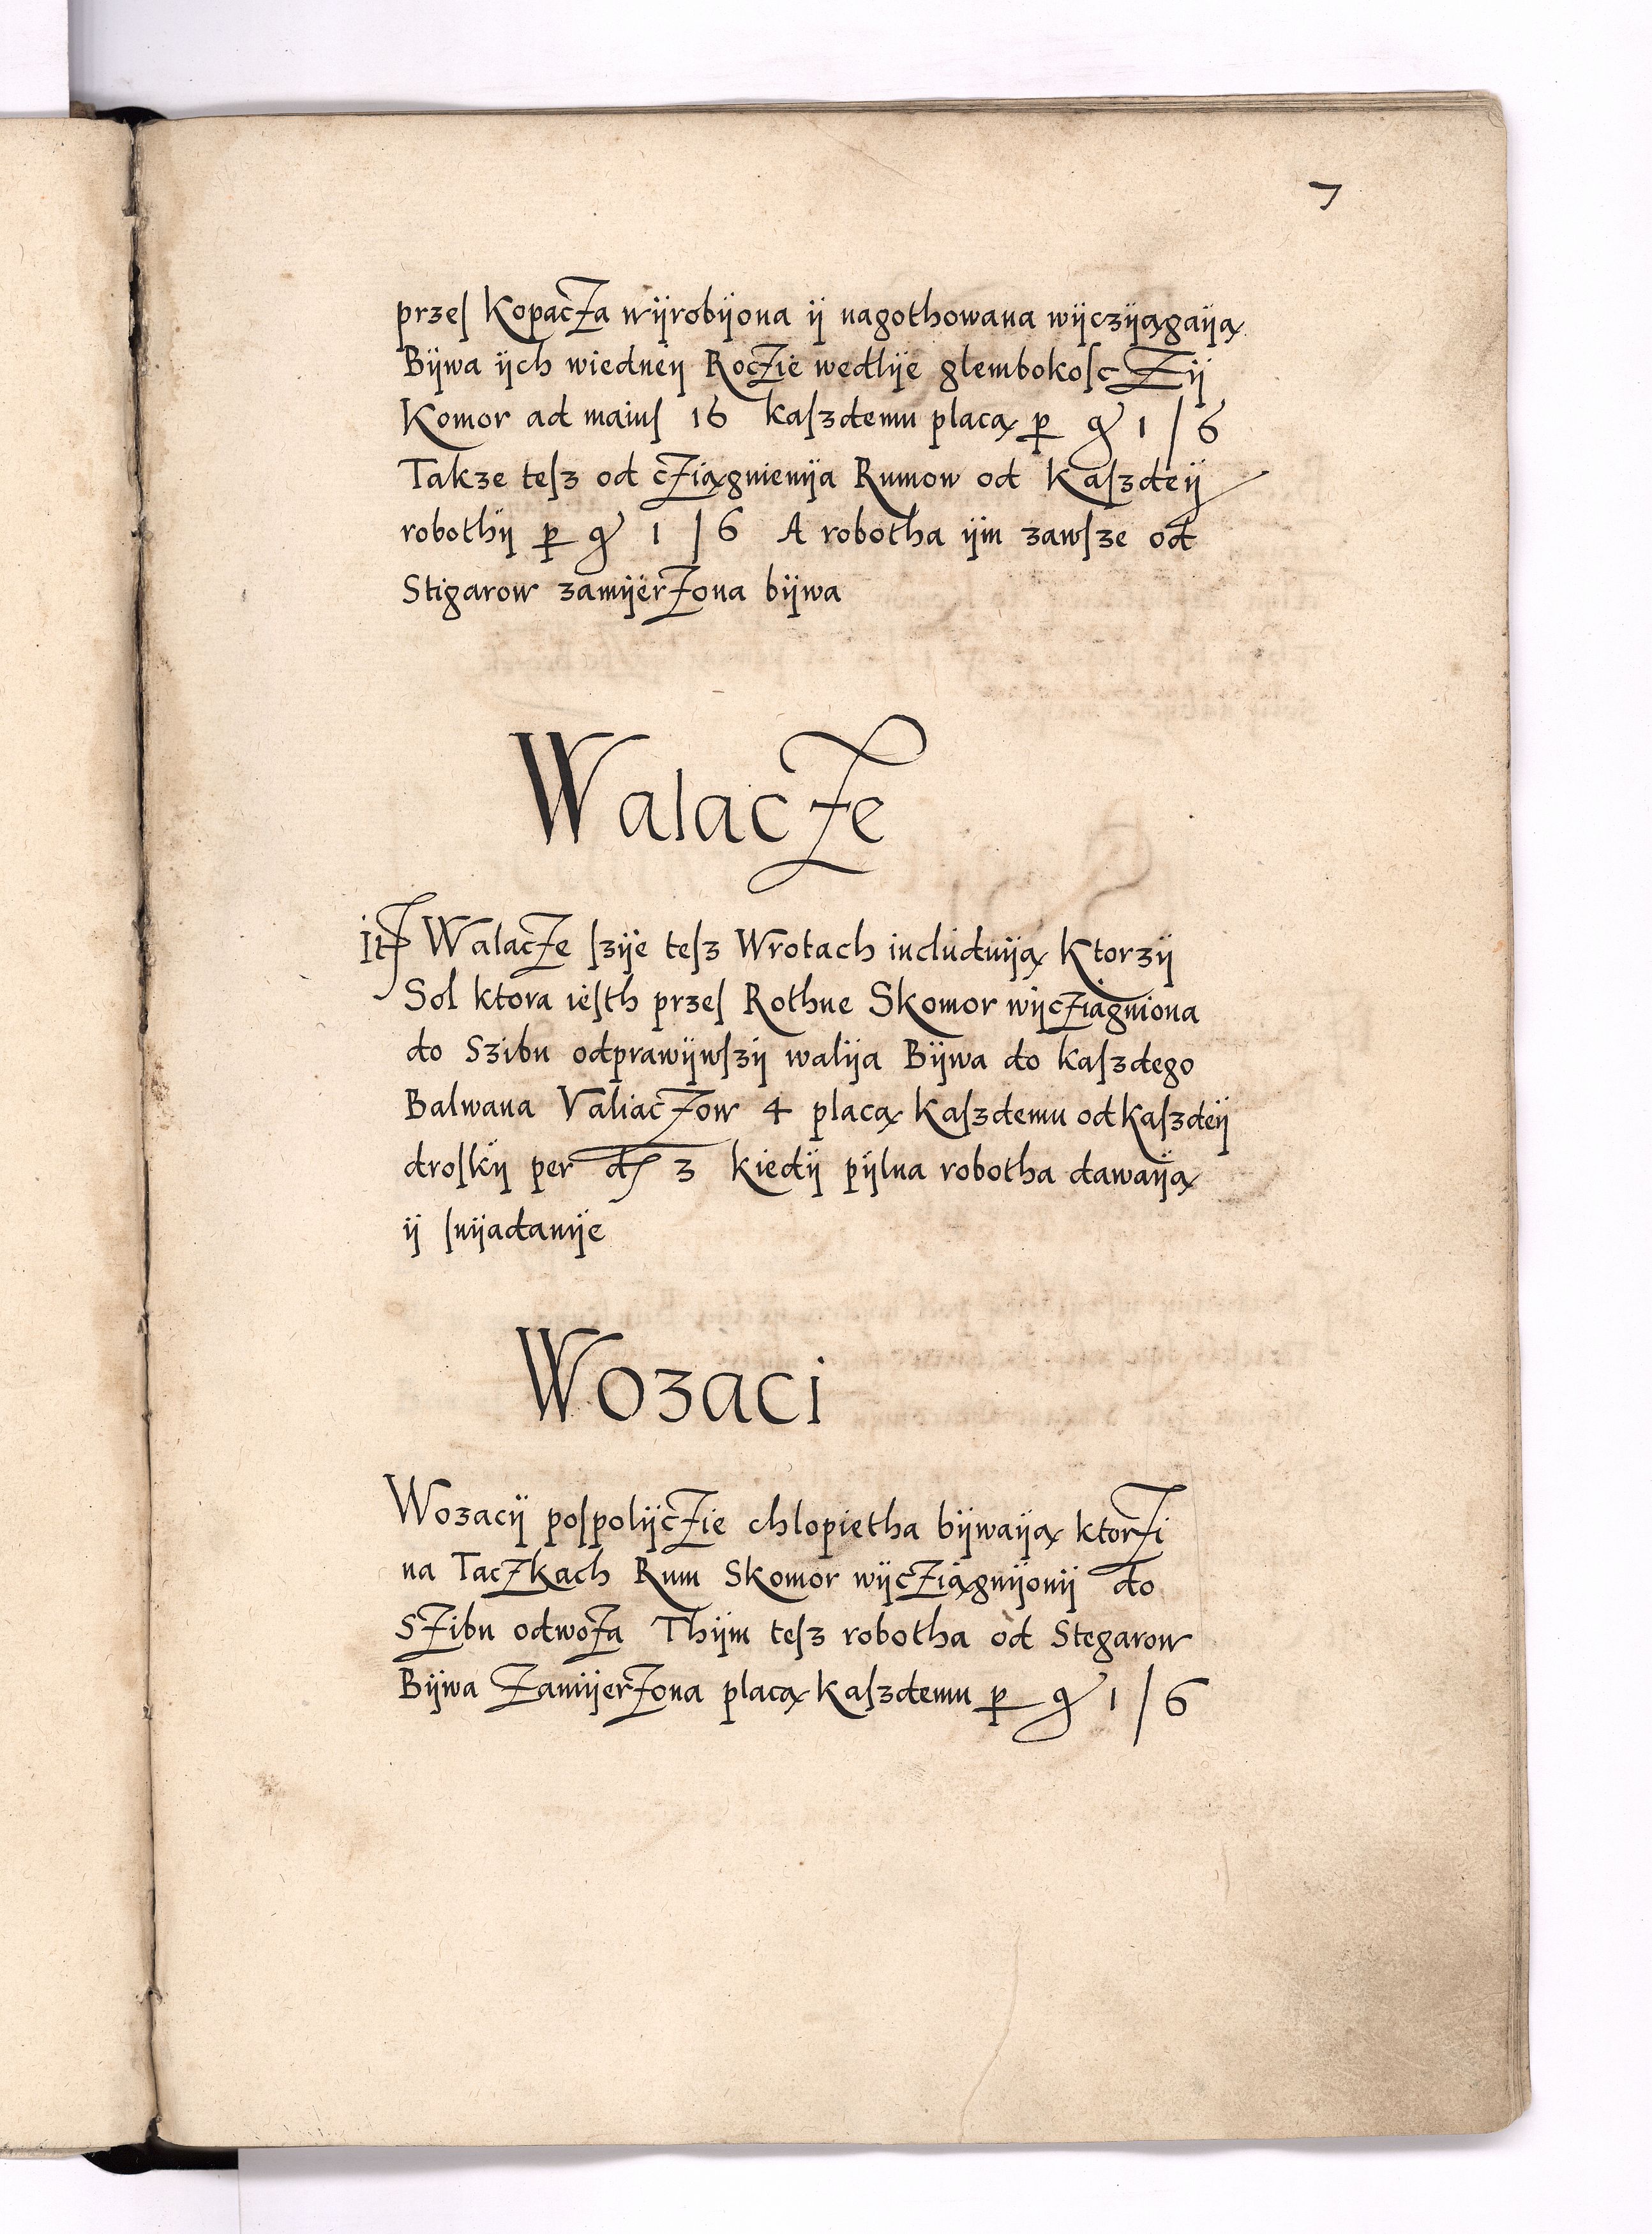 7
przeſ Kopacża wÿrobÿona ÿ nagothowana wÿczÿągaÿą
Bÿwa ÿch wiedneÿ Rocżie wedlÿe glembokoſcżÿ
Komor ad maiuſ 16 kaſzdemu placą p̱ gͦ 1 / 6
Takze teſz od cżiągnienÿa Rumow od Kaſzdeÿ
robothÿ p̱ gͦ 1 / 6 A robotha ÿm zawſze od
Stigarow zamÿerżona bÿwa
Walacże
Walacże ſzÿe teſz Wrotach includuÿą Ktorzÿ
Sol ktora ieſth przeſ Rothne Skomor wÿcżiągniona
do Szibu odprawÿwſzÿ walÿa Bÿwa do kaſzdego
Balwana Valiacżow 4 placą Kaſzdemu od kaſzdeÿ
droſkÿ per d 3 kiedÿ pÿlna robotha dawaÿą
ÿ ſnÿadanÿe
Wozaci
Wozacÿ poſpolÿcżie chlopietha bÿwaÿą ktorżi
na Taczkach Rum Skomor wÿcżiągnÿonÿ do
Sżibu odwoża Thÿm teſz robotha od Stegarow
Bÿwa Zamÿerżona placą kaſzdemu p̱ gͦ 1 / 6